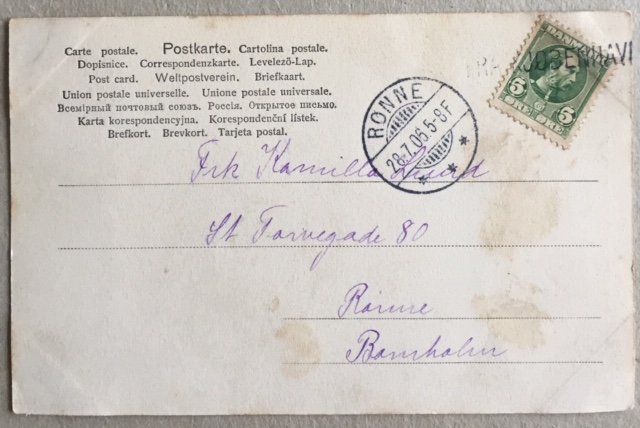 Carte postale. Postkarte. Cartolina postale.
Dopisnice. Correspondenzkarte. Levelező-Lap.
Post card. Weltpostverein. Briefkaart.
Union postale universelle. Unione postale universale.
Всемірный почтовый союзъ. Россія. Открытое письмо.
Karta korespondencyjna. Korespondenční lístek.
Brefkort. Brevkort. Tarjeta postal.
FRA KJØBENHAVN
5 5
RØNNE
28.7.06.5-8F
Frk Kamilla
St Torvegade 80
Rönne
Bornholm